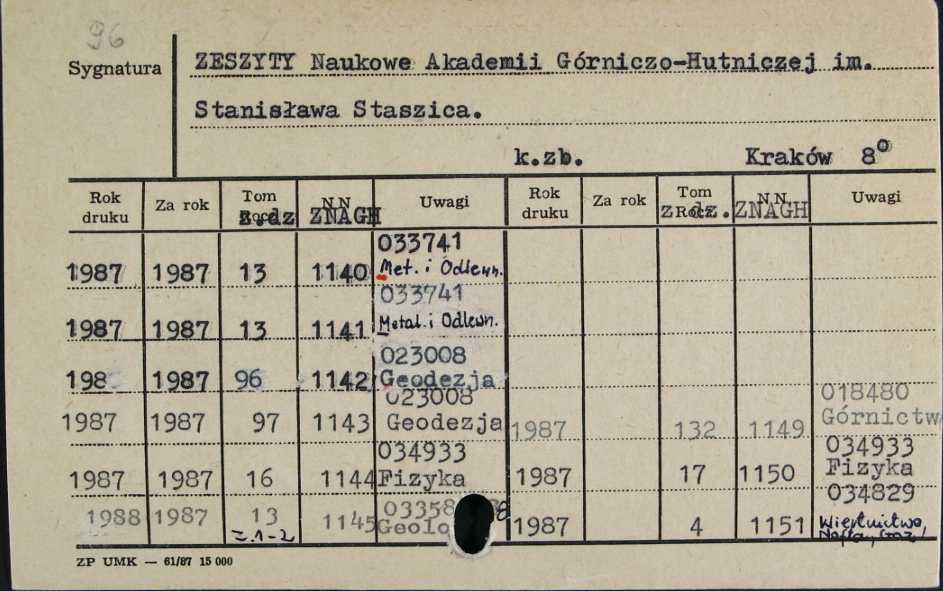 96
Sygnatura
ZESZYTY Naukowe Akademii Górniczo-Hutniczej im.
Stanisława Staszica.
k.zb. Kraków 8º
Rok druku Za rok Tom z.dz N N ZNAGH Uwagi Rok druku Za rok Tom z. dz. N N ZNAGH Uwagi
1987 1987 13 1140 033741 Met. i Odlewn.
1987 1987 13 1141 033741 Metal. i Odlewn.
198 1987 96 1142 023008 Geodezja
1987 1987 97 1143 023008 Geodezja 1987 132 1149 018480 Górnictw
1987 1987 16 1144 034933 Fizyka 1987 17 1150 034933 Fizyka
1988 1987 13 z.1-2 1145 1987 4 1151 034829 Wiertnictwo,
ZP UMK — 61/87 15 000